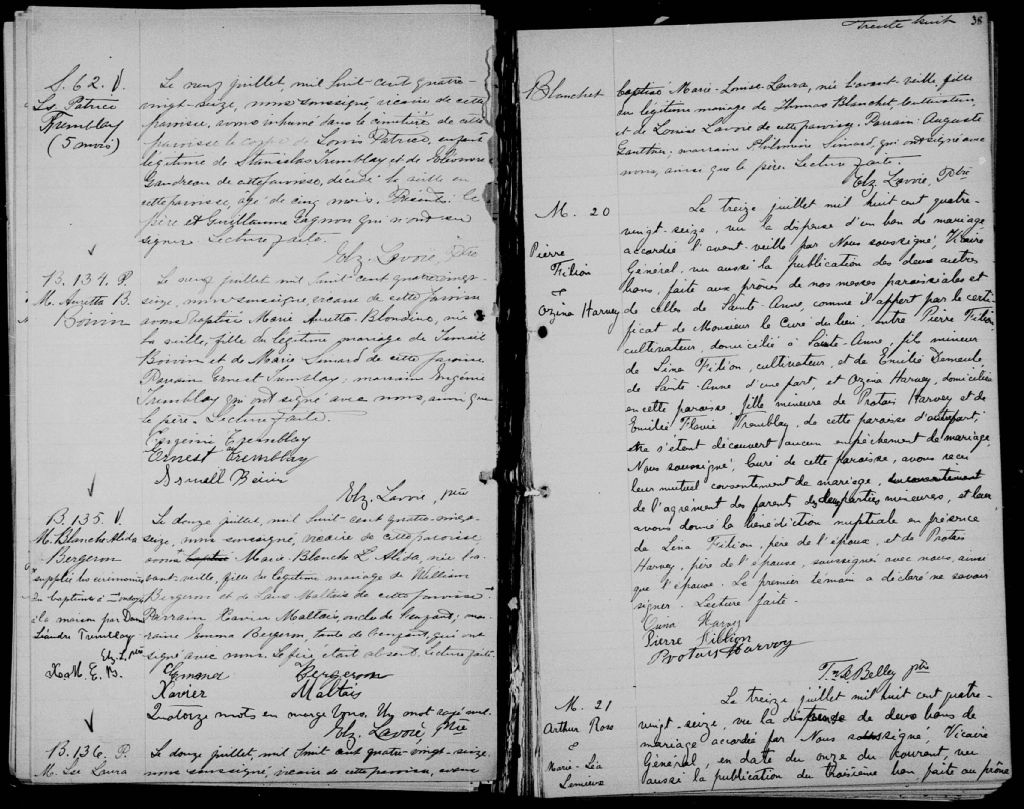 S. 62. V.
Ls Patrice
Tremblay
(5 mois)
Le neuf juillet, mil huit-cent quatre-
vingt-seize, nous soussigné, vicaire de cette
paroisse, avons inhumé dans le cimetière de cette
paroisse le corps de Louis Patrice, enfant
légitime de Stanislas Tremblay et de Eléonore
Gaudreau de cette paroisse, décédé la veille en
cette paroisse, âgé de cinq mois. Présents: le
père et Guillaume Gagnon qui n'ont su
signer. Lecture faite.
Elz. Lavoie, Ptre
B. 134. P.
M. Auretta B.
Boivin
Le neuf juillet, mil huit-cent quatre-vingt-
seize, nous soussigné, vicaire de cette paroisse
avons baptisé Marie Auretta Blondine, née
la veille, fille du légitime mariage de Ismaël
Boivin et de Marie Simard de cette paroisse.
Parrain Ernest Tremblay; marraine Eugénie
Tremblay qui ont signé avec nous, ainsi que
le père. Lecture faite.
Eugenie Tremblay
Ernest Tremblay
Ismaël Boivin
Elz. Lavoie, ptre
B. 135. V.
M. Blanche Alida
Bergeron
suppléé les cérémonies
du baptême à
à la maison par Dame
Léandre Tremblay
Elz. L. ptre
X. M. E. B.
Le douze juillet, mil huit-cent quatre-vingt-
seize, nous soussigné, vicaire de cette paroisse,
avons baptisé Marie Blanche L. Alida, née l'a-
vant-veille, fille du légitime mariage de William
Bergeron et de Maltais de cette paroisse.
Parrain Xavier Maltais, oncle de l'enfant; mar-
raine Emma Bergeron, tante de l'enfant, qui ont
signé avec nous. Le père était absent. Lecture faite.
Emma Bergeron
Xavier Maltais
Quatorze mots en marge bons. Un mot rayé nul.
Elz. Lavoie Ptre
B. 136. P.
M. Lse Laura
Le douze juillet, mil huit cent quatre-vingt-seize
nous soussigné, vicaire de cette paroisse, avons
Trente huit 38
Blanchet
baptisé Marie-Louise-Laura, née l'avant-veille, fille
du légitime mariage de Thomas Blanchet, cultivateur,
et de Louise Lavoie de cette paroisse. Parrain: Auguste
Gauthier; marraine Philomène Simard, qui ont signé avec
nous, ainsi que le père. Lecture faite.
Elz. Lavoie, Ptre
M. 20
Pierre
Fition
&
Ozina Harvey
Le treize juillet mil huit cent quatre-
vingt-seize, vu la dispense d'un ban de mariage
accordée l'avant-veille par Nous soussigné, Vicaire
Général, vu aussi la publication des deux autres
bans, faite aux prônes de nos messes paroissiales et
de celles de Sainte-Anne, comme il appert par le certi-
ficat de Monsieur le Curé du lieu, entre Pierre Fition
cultivateur, domicilié à Sainte-Anne, fils mineur
de Lina Fition, cultivateur, et de Emilie Demeule,
de Sainte-Anne d'une part, et Ozina Harvey, domiciliée
en cette paroisse, fille mineure de Protais Harvey et de
Emilie Flavie Tremblay, de cette paroisse d'autre part;
ne s'étant découvert aucun empêchement de mariage,
Nous soussigné, Curé de cette paroisse, avons reçu
leur mutuel consentement de mariage, du consentement
de l'agrément des parents des deux parties mineures, et leur
avons donné la bénédiction nuptiale en présence
de Lina Fition, père de l'époux, et de Protais
Harvey, père de l'épouse, soussigné avec nous, ainsi
que l'épouse. Le premier témoin a déclaré ne savoir
signer. Lecture faite.
Harvey
Pierre Fillion
Protais Harvey
Belley ptre
M. 21
Arthur Ross
&
Marie-Léa
Lemieux
Le treize juillet mil huit cent quatre-
vingt-seize, vu la dispense de deux bans de
mariage accordée par Nous soussigné, Vicaire
Général, en date du onze du courant, vu
aussi la publication du troisième ban faite au prône